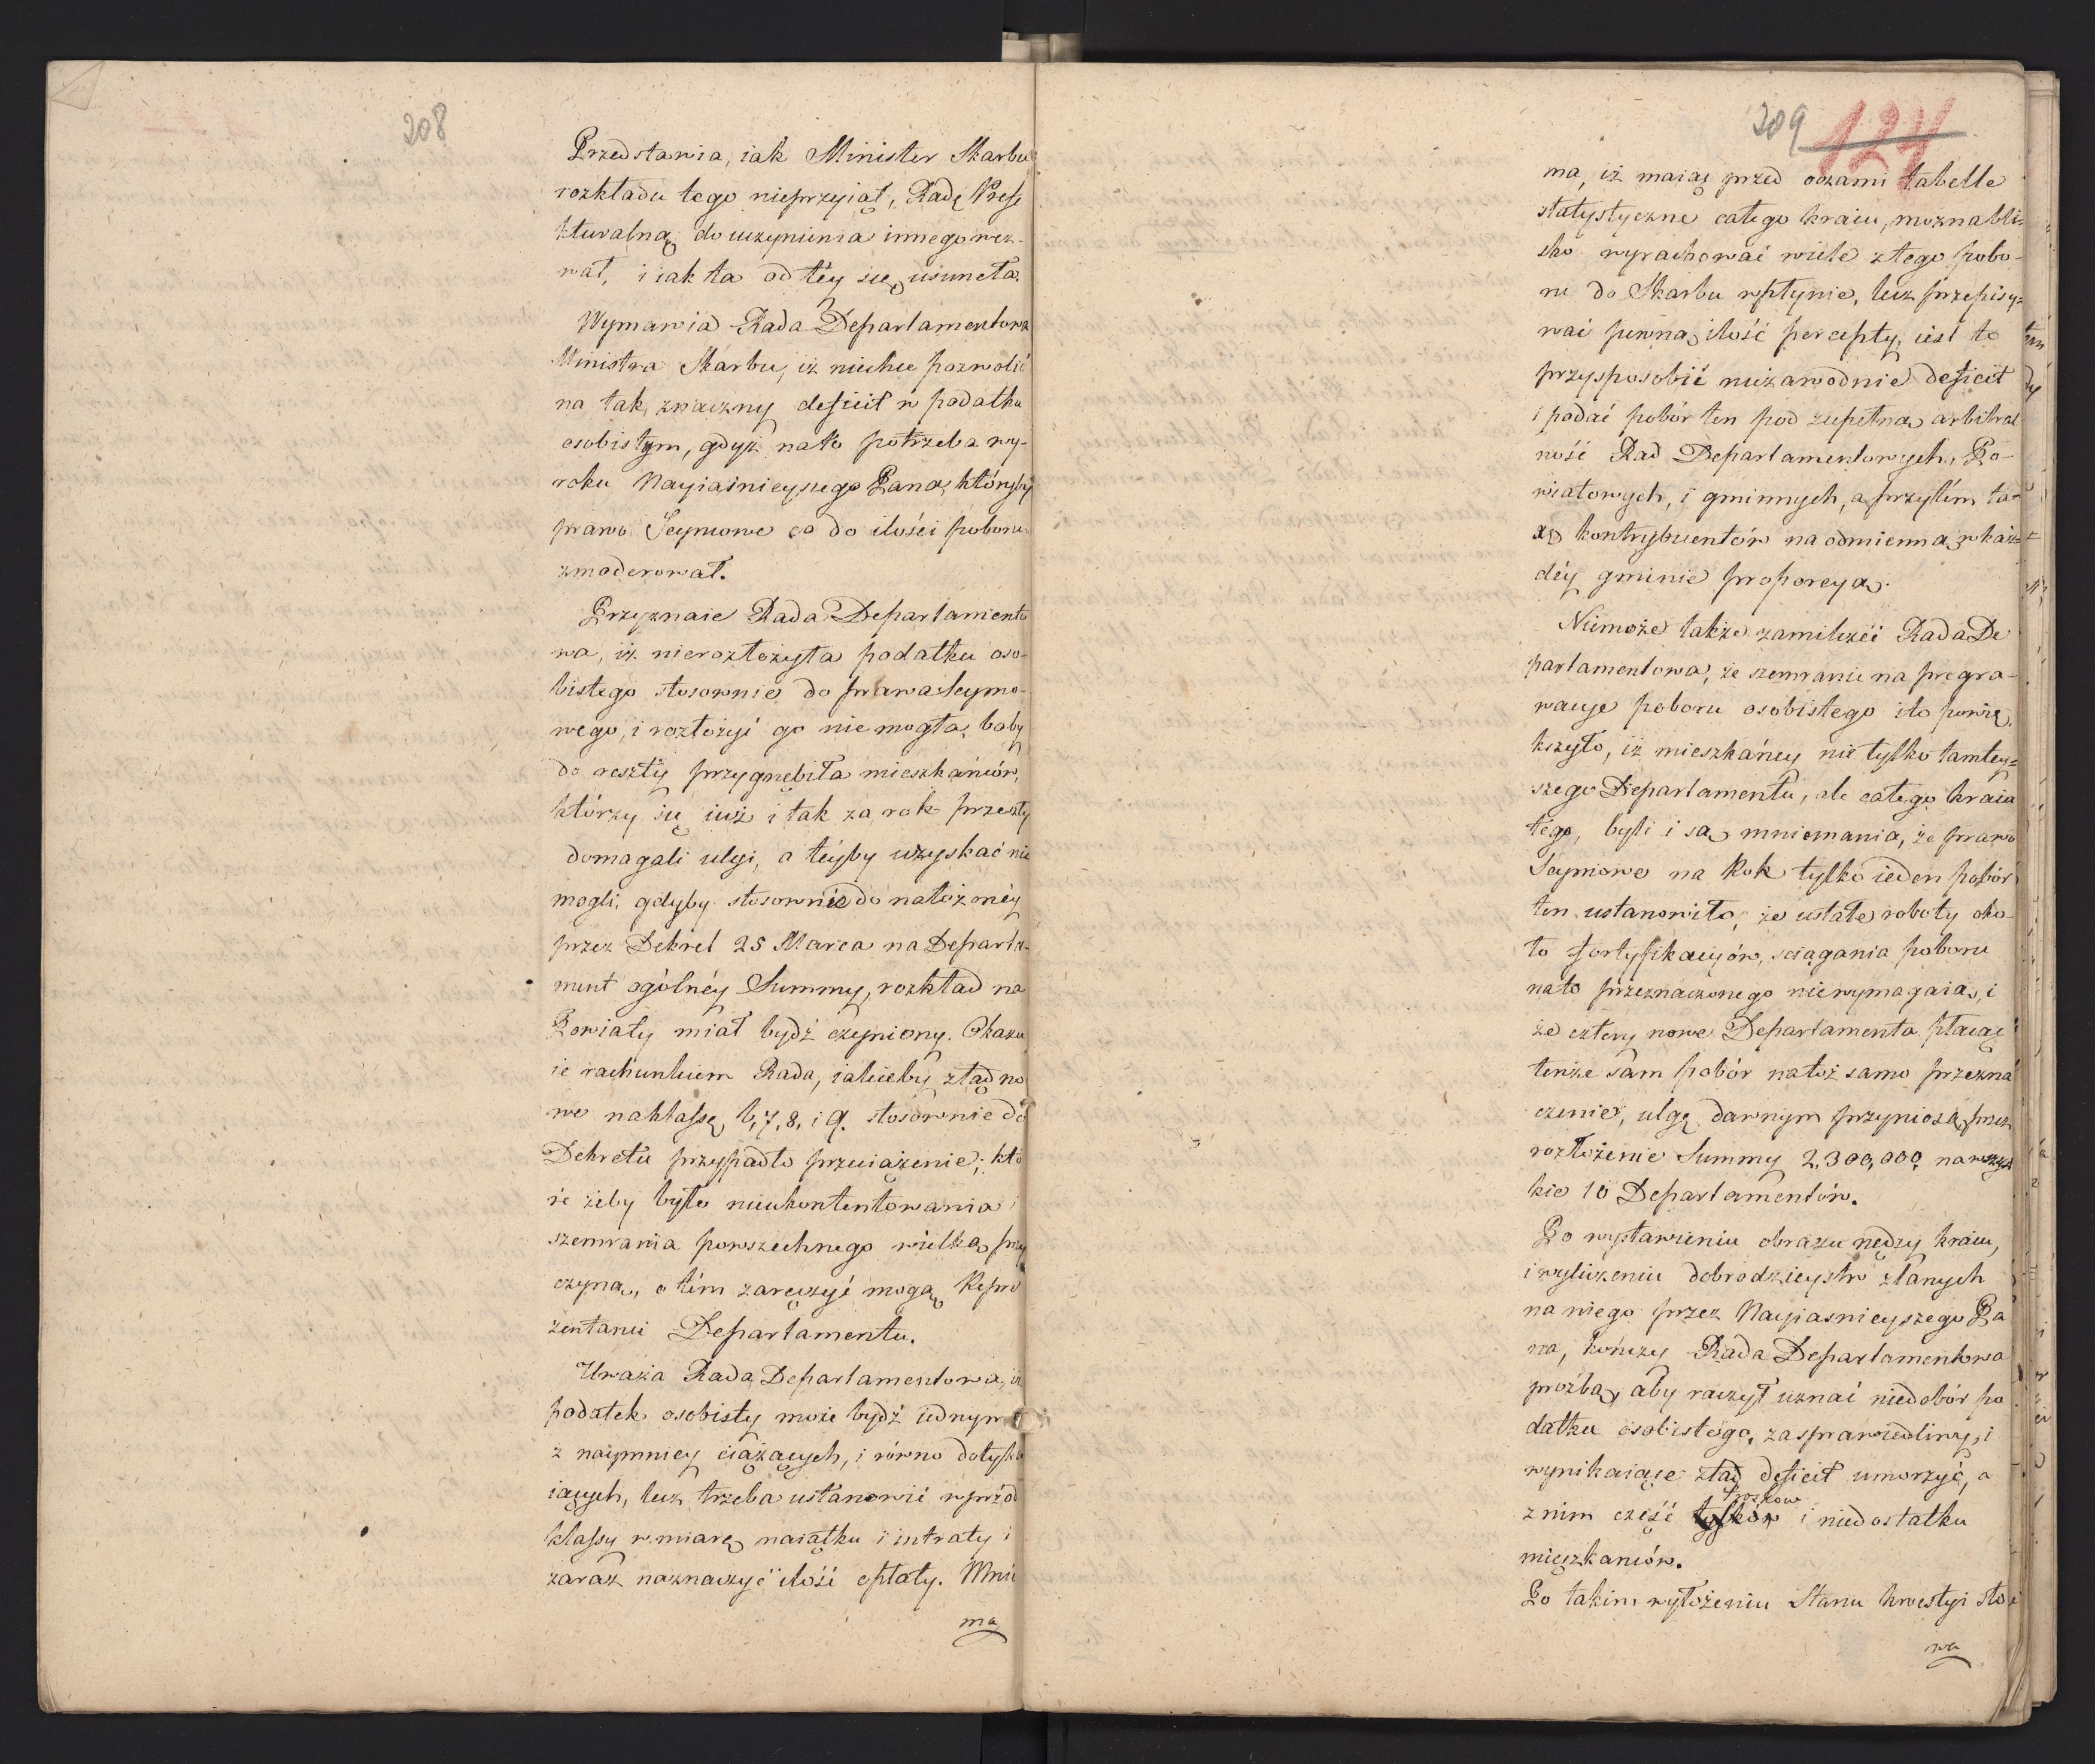 208
Przedstawia, iak Minister Skarbu
rozkładu tego nieprzyiął, Radę Prefe
kturalną do uczynienia innego wez-
wał, i iak ta od téy się usunęła.
Wymawia Rada Departamentowa
Ministra Skarbu, iż niechce pozwolić
na tak znaczny deficit w podatku
osobistym, gdyż nato potrzeba wy-
roku Nayiaśnieyszego Pana, któryby
prawo Seymowe co do ilości poboru
zmoderował.
Przyznaie Rada Departamento
wa, iż nierozłożyła podatku oso-
bistego stosownie do prawa seymo-
wego, i rozłożyć go nie mogła, boby
do reszty przygnębiła mieszkańców,
którzy się iuż i tak za rok przeszły
domagali ulgi, a téyby uzyskać nie
mogli, gdyby stosownie do nałożonéy
przez Dekret 25 Marca na Departa-
ment ogólnéy Summy, rozkład na
Powiaty miał bydź czyniony. Okazu
ie rachunkiem Rada, iakieby ztąd no
we naklassę 6, 7, 8, i 9. stosownie do
Dekretu przypadło przeciążenie; któ
re żeby było nieukontentowania i
szemrania powszechnego wielką przy
czyną, o tém zaręczyć mogą Repre
zentanci Departamentu.
Uważa Rada Departamentowa, iż
podatek osobisty może bydź iednym
z naymniey ciążących, i równo dotyka
iących, lecz trzeba ustanowić wprzód
klassy w miarę maiątku i intraty i
zaraz naznaczyć ilość opłaty. Mnie
ma
209 124
ma, iż maiąc przed oczami tabelle
statystyczne całego kraiu, można bli-
sko wyrachować wiele z tego pobo-
ru do Skarbu wpłynie, lecz przepisy-
wać pewną ilość percepty, iest to
przysposobić niezawodnie deficit
i podać pobór ten pod zupełną arbitral
ność Rad Departamentowych, Po-
wiatowych, i gminnych, a przytém ta-
xę kontrybuentów na odmienną w każ-
déy gminie proporcyą.
Niemoże także zamilczéć Rada De
partamentowa, że szemranie na pregra-
wacye poboru osobistego ito powię
kszyło, iż mieszkańcy nie tylko tamtey-
szego Departamentu, ale całego kraiu
tego, byli i są mniemania, że prawo
Seymowe na Rok tylko ieden pobór
ten ustanowiło; że ustałe roboty oko-
ło fortyfikacyów, sciągania poboru
nato przeznaczonego niewymagaią, i
że cztery nowe Departamenta płacąc
tenże sam pobór natoż samo przezna
czenie, ulgę dawnym przyniosą przez
rozłożenie Summy 2,300,000 na wszyst
kie 10 Departamentów.
Po wystawieniu obrazu nędzy kraiu,
i wyliczeniu dobrodzieystw zlanych
na niego przez Nayiasnieyszego Pa
na, kończy Rada Departamentowa
proźbą, aby raczył uznać niedobór po
datku osobistego, za sprawiedliwy, i
wynikaiące ztąd deficit umorzyć, a
z nim cześć trosków i niedostatku
mieszkańców.
Po takim wyłożeniu Stanu kwestyi sto
wa